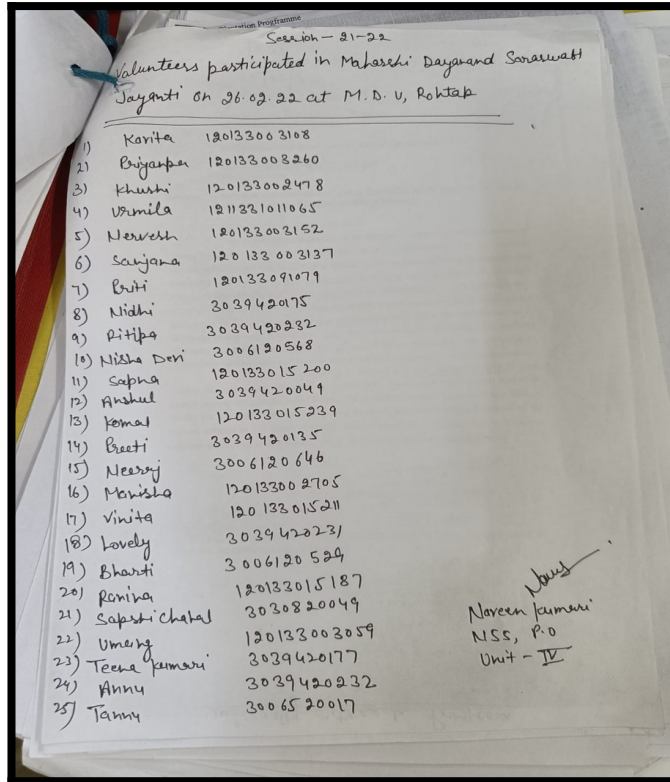 ntation Programme
Session - 21-22
Valunteers participated in Maharshi Dayanand Saraswati
Jayanti on 26.02.22 at M.D.U, Rohtak
1) Kavita 120133003108
2) Priyanka 120133003260
3) Khushi 120133002478
4) Urmila 1211331011065
5) Nervesh 120133003152
6) Sanjana 120133003137
7) Priti 120133091079
8) Nidhi 3039420175
9) Ritika 3039420232
10) Nisha Devi 3006120568
11) Sapna 120133015200
12) Anshul 3039420049
13) Komal 120133015239
14) Preeti 3039420135
15) Neeraj 3006120646
16) Manisha 120133002705
17) Vinita 120133015211
18) Lovely 3039420231
19) Bharti 3006120529
20) 120133015187
21) Sakshi Chahal 3030820049
22) Umang 120133003059
23) Teena Kumari 3039420177
24) Annu 3039420232
25) Tannu 3006520017
Naveen Kumari
NSS, P.O
Unit - IV